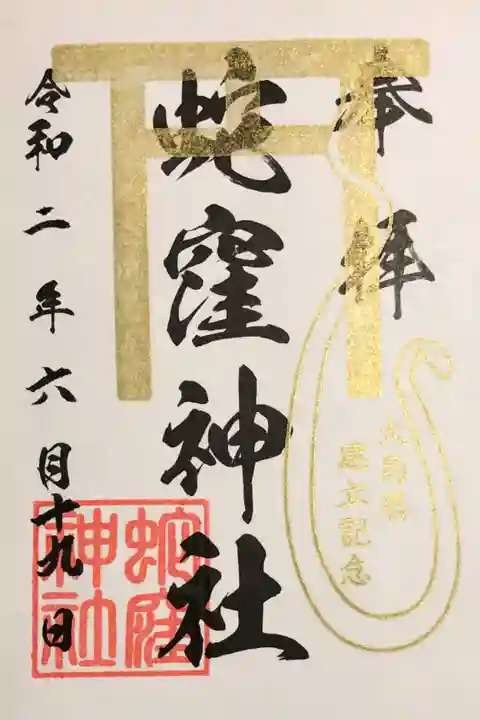 奉拝
蛇窪神社
大鳥居
建立記念
令和二年六月十九日
蛇窪
神社